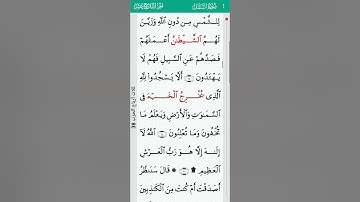 لِلشَّمْسِ مِن دُونِ ٱللَّهِ وَزَيَّنَ
لَهُمُ ٱلشَّيْطَٰنُ أَعْمَٰلَهُمْ
فَصَدَّهُمْ عَنِ ٱلسَّبِيلِ فَهُمْ لَا
يَهْتَدُونَ ۝ أَلَّا يَسْجُدُوا۟ لِلَّهِ
ٱلَّذِى يُخْرِجُ ٱلْخَبْءَ فِى
ٱلسَّمَٰوَٰتِ وَٱلْأَرْضِ وَيَعْلَمُ مَا
تُخْفُونَ وَمَا تُعْلِنُونَ ۝ ٱللَّهُ لَآ
إِلَٰهَ إِلَّا هُوَ رَبُّ ٱلْعَرْشِ
ٱلْعَظِيمِ ۩ ۝ ۞ قَالَ سَنَنظُرُ
أَصَدَقْتَ أَمْ كُنتَ مِنَ ٱلْكَٰذِبِينَ